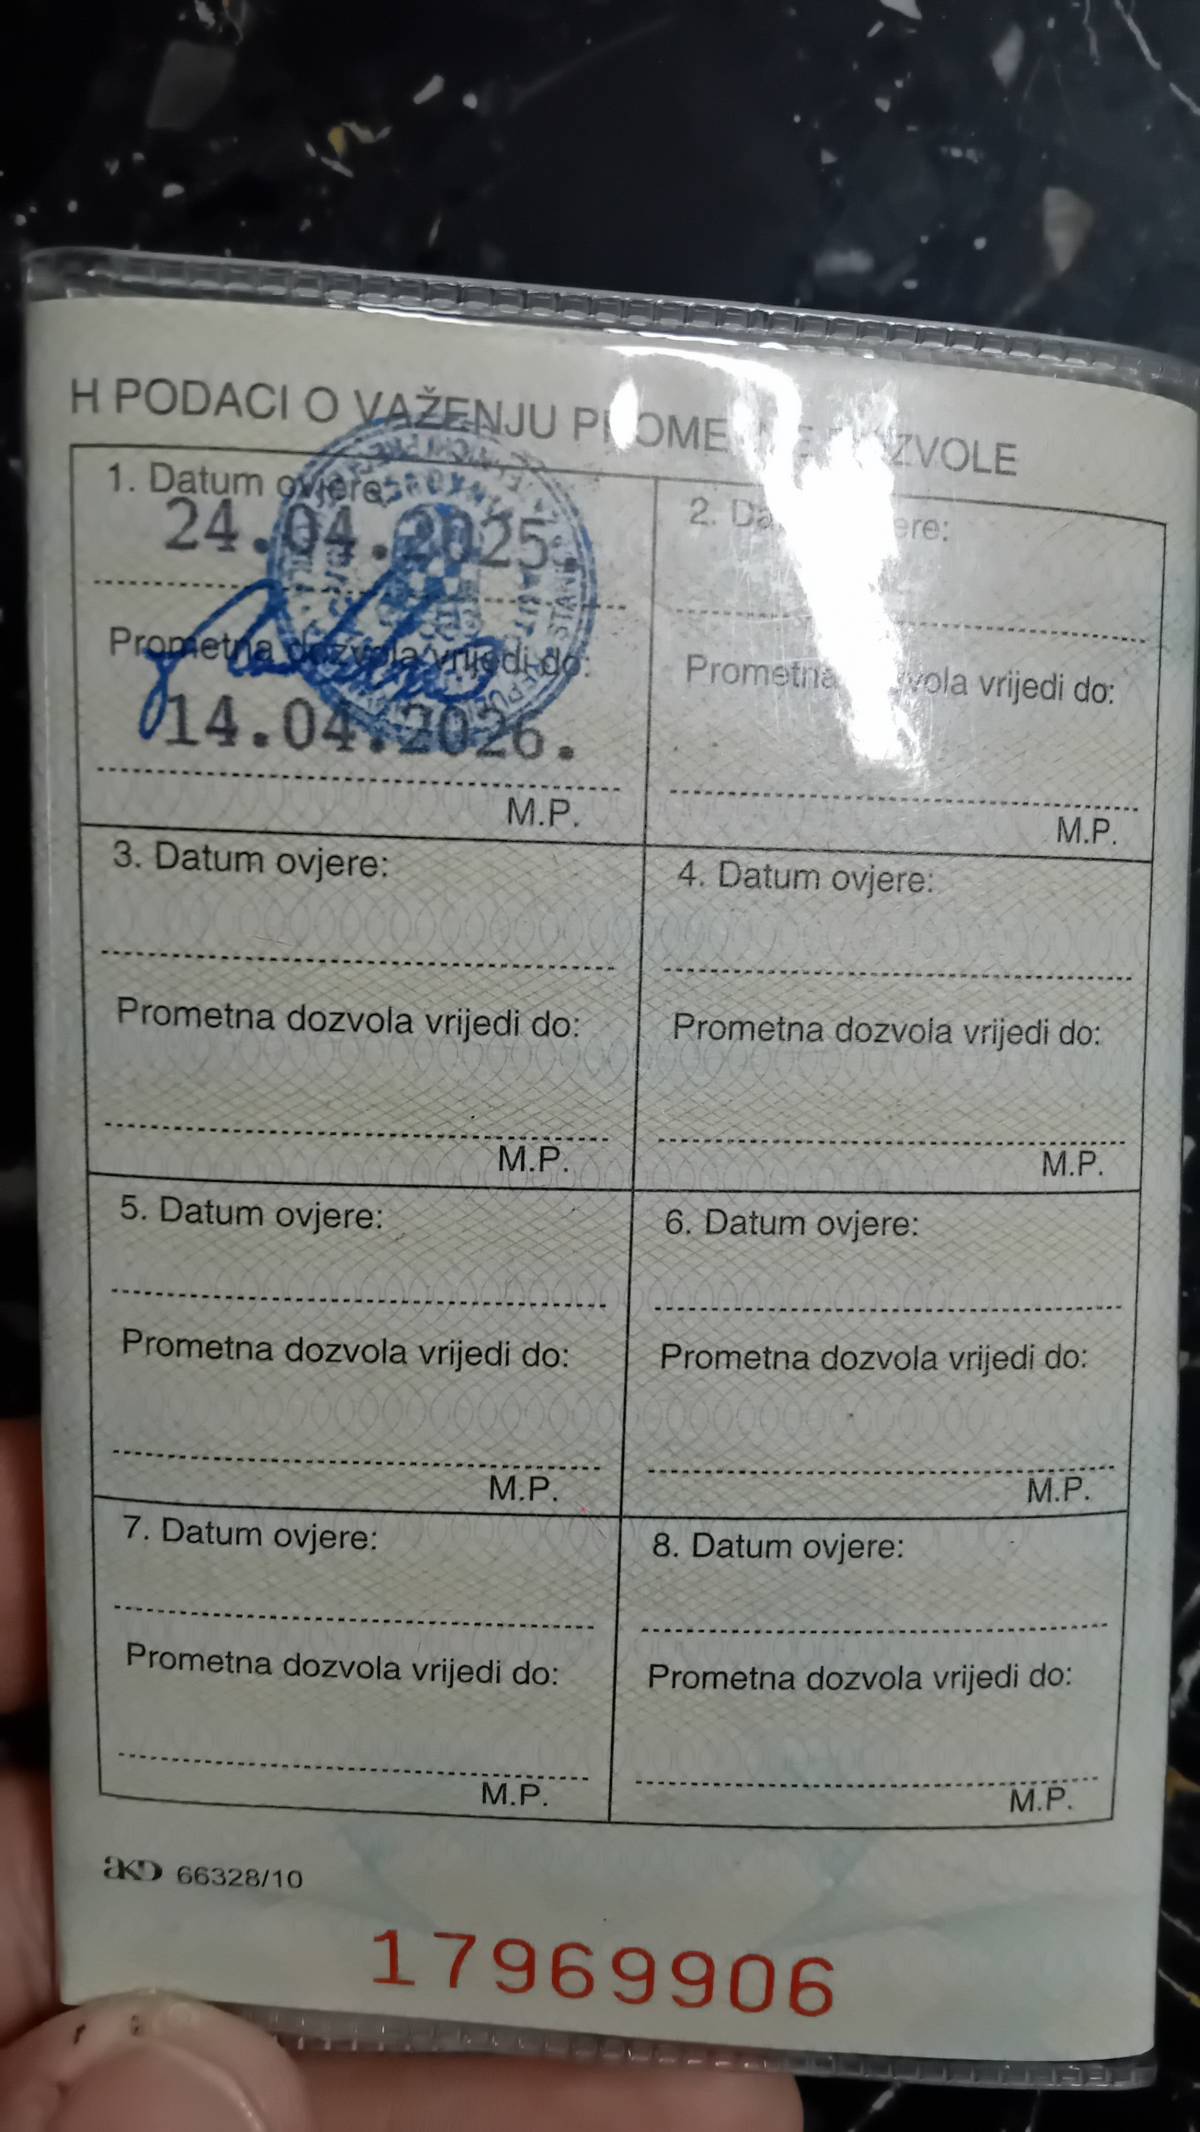 H PODACI O VAŽENJU PROMETNE DOZVOLE
1. Datum ovjere:
24.04.2025.
Prometna dozvola vrijedi do:
14.04.2026.
M.P.
2. Datum ovjere:
Prometna dozvola vrijedi do:
M.P.
3. Datum ovjere:
Prometna dozvola vrijedi do:
M.P.
4. Datum ovjere:
Prometna dozvola vrijedi do:
M.P.
5. Datum ovjere:
Prometna dozvola vrijedi do:
M.P.
6. Datum ovjere:
Prometna dozvola vrijedi do:
M.P.
7. Datum ovjere:
Prometna dozvola vrijedi do:
M.P.
8. Datum ovjere:
Prometna dozvola vrijedi do:
M.P.
AKD 66328/10
17969906